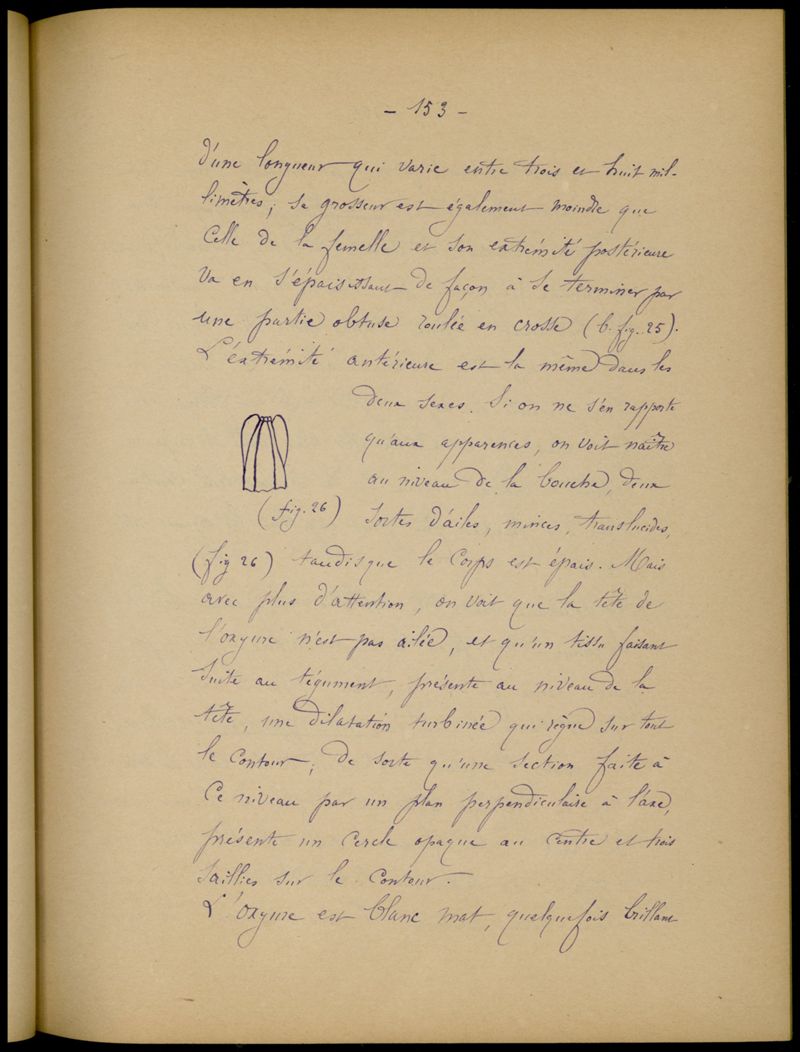 - 153 -
d'une longueur qui varie entre trois et huit mil-
limètres; sa grosseur est également moindre que
celle de la femelle et son extrémité postérieure
va en s'épaississant de façon à se terminer par
une partie obtuse roulée en crosse (b. fig. 25).
L'extrémité antérieure est la même dans les
deux sexes. Si on ne s'en rapporte
qu'aux apparences, on voit naître
au niveau de la bouche, deux
(fig. 26)
sortes d'ailes, minces, translucides,
(fig 26) tandis que le corps est épais. Mais
avec plus d'attention, on voit que la tête de
l'oxyure n'est pas ailée, et qu'un tissu faisant
suite au tégument, présente au niveau de la
tête, une dilatation turbinée qui règne sur tout
le contour; de sorte qu'une section faite à
ce niveau par un plan perpendiculaire à l'axe,
présente un cercle opaque au centre et trois
saillies sur le contour.
L'oxyure est blanc mat, quelquefois brillant